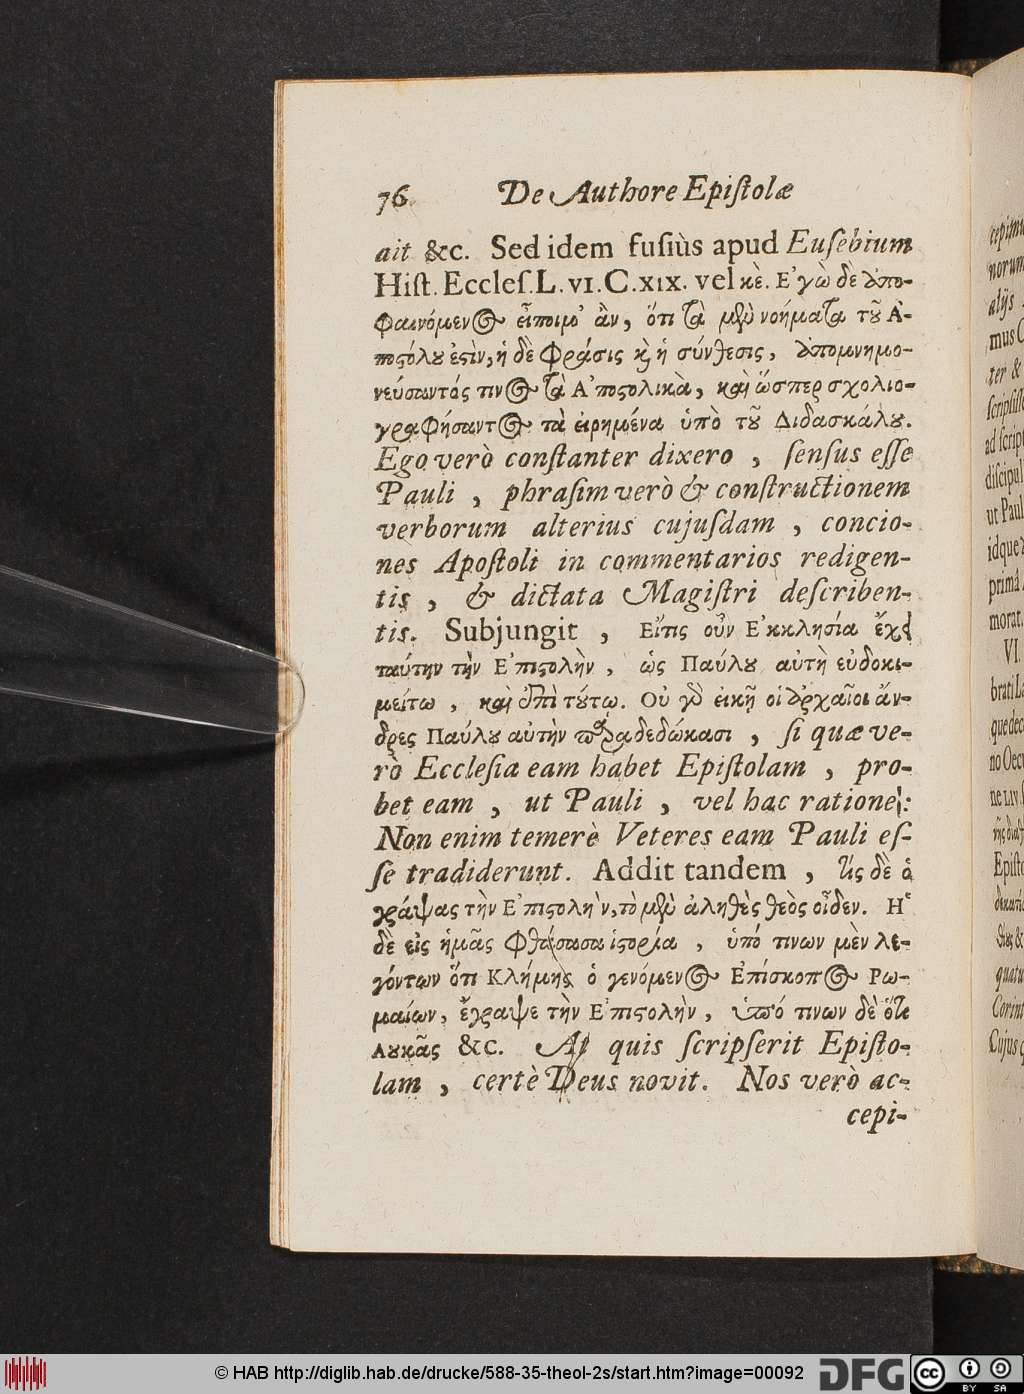 76 De Authore Epiſtolæ
ait &c. Sed idem fuſiùs apud Euſebium
Hiſt. Eccleſ. L. VI. C. XIX. vel κὲ. Ε᾽γὼ δὲ ἀπο-
φαινόμενος εἴποιμ᾽ ἂν, ὅτι τὰ μὲν νοήματα τοῦ Α᾽-
ποςόλου ἐςὶν, ἡ δὲ φράσις καὶ ἡ σύνθεσις, ἀπομνημο-
νεύσαντός τινος τὰ Α᾽ποςολικὰ, καὶ ὥσπερ σχολιο-
γραφήσαντος τὰ εἰρημένα ὑπὸ τοῦ Διδασκάλου.
Ego verò conſtanter dixero, ſenſus eſſe
Pauli, phraſim verò & conſtructionem
verborum alterius cujuſdam, concio-
nes Apoſtoli in commentarios redigen-
tis, & dictata Magiſtri deſcriben-
tis. Subjungit, Εἴτις οὖν Ε᾽κκλησία ἔχει
ταύτην τὴν Ε᾽πιςολὴν, ὡς Παύλου αὐτὴ εὐδοκι-
μείτω, καὶ ἐπὶ τούτῳ. Οὐ γὰρ εἰκῆ οἱ ἀρχαῖοι ἄν-
δρες Παύλου αὐτὴν παραδεδώκασι, ſi quæ ve-
rò Eccleſia eam habet Epiſtolam, pro-
bet eam, ut Pauli, vel hac ratione:
Non enim temerè Veteres eam Pauli eſ-
ſe tradiderunt. Addit tandem, τίς δὲ ὁ
γράψας τὴν Ε᾽πιςολὴν, τὸ μὲν ἀληθὲς θεὸς οἶδεν. Η῾
δὲ εἰς ἡμᾶς φθάσασα ἱςορία, ὑπό τινων μὲν λε-
γόντων ὅτι Κλήμης ὁ γενόμενος Ε᾽πίσκοπος Ρω-
μαίων, ἔγραψε τὴν Ε᾽πιςολὴν, ὑπό τινων δὲ ὅτι
Λουκᾶς &c. At quis ſcripſerit Epiſto-
lam, certè Deus novit. Nos verò ac-
cepi-
norum
mus C
ter &
ſcripſiſſe
ad ſcript
diſcipul
ut Paul
idque
primâ
morat.
VI.
brati La
que dec
no Oec
ne LIV.
Epiſto
quatu
Corint
Cujus
© HAB http://diglib.hab.de/drucke/588-35-theol-2s/start.htm?image=00092
DFG
cc
BY SA